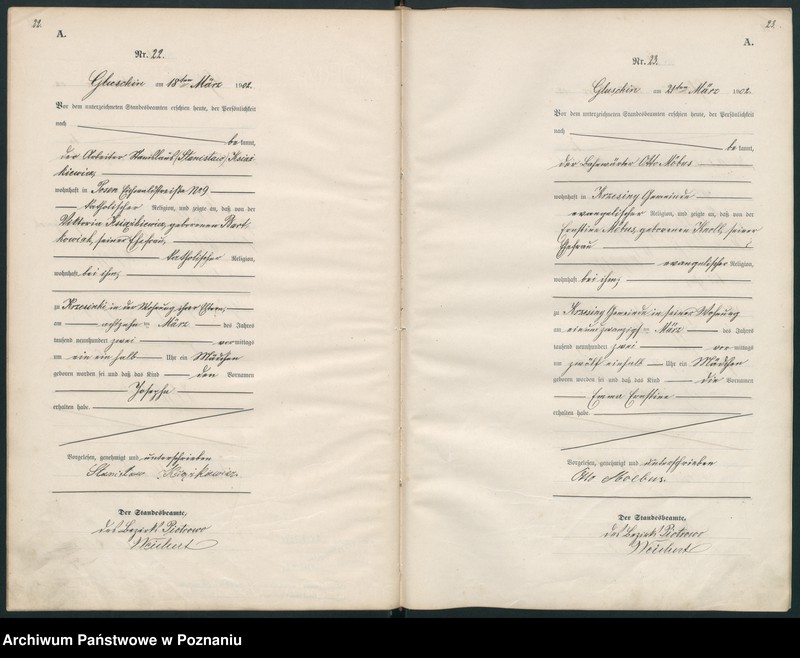 22.
A.
Nr. 22.
Gluschin am 18ten März 1902.
Vor dem unterzeichneten Standesbeamten erschien heute, der Persönlichkeit
nach
be kannt,
der Arbeiter Stanislaus (Stanislaw) Ksiaz-
kiewicz,
wohnhaft in Posen No 9
katholischer Religion, und zeigte an, daß von der
Viktoria Ksiazkiewicz, geborenen Bart-
kowiak, seiner Ehefrau,
katholischer Religion,
wohnhaft bei ihm,
zu Krzesinki in der Wohnung ihrer Eltern,
am achtzehnten März des Jahres
tausend neunhundert zwei vormittags
um ein ein halb Uhr ein Mädchen
geboren worden sei und daß das Kind den Vornamen
Josepha
erhalten habe.
Vorgelesen, genehmigt und unterschrieben
Der Standesbeamte,
des Bezirks Piotrowo
23.
A.
Nr. 23.
Gluschin am 21ten März 1902.
Vor dem unterzeichneten Standesbeamten erschien heute, der Persönlichkeit
nach
be kannt,
der Bahnwärter Otto Möbus
wohnhaft in Krzesiny Gemeinde
evangelischer Religion, und zeigte an, daß von der
Ernstine Möbus, geborenen seiner
Ehefrau
evangelischer Religion,
wohnhaft bei ihm,
zu Krzesiny Gemeinde in seiner Wohnung
am einundzwanzigsten März des Jahres
tausend neunhundert zwei vormittags
um zwölf einhalb Uhr ein Mädchen
geboren worden sei und daß das Kind die Vornamen
Emma Ernstine
erhalten habe.
Vorgelesen, genehmigt und unterschrieben
Otto Moebus.
Der Standesbeamte,
des Bezirks Piotrowo
Archiwum Państwowe w Poznaniu